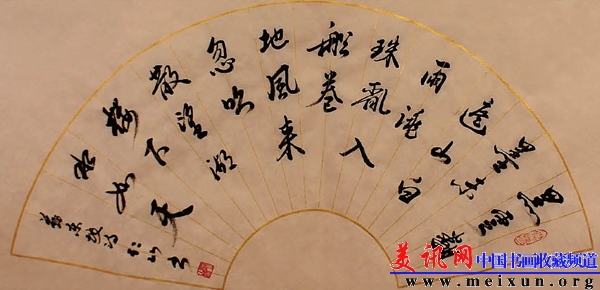 黑雲翻
墨未
遮山白
雨跳
珠亂入
船卷
地風来
忽吹
散望湖
樓下
水如天
蘇東坡詩
美讯网 中国书画收藏频道
www.meixun.org